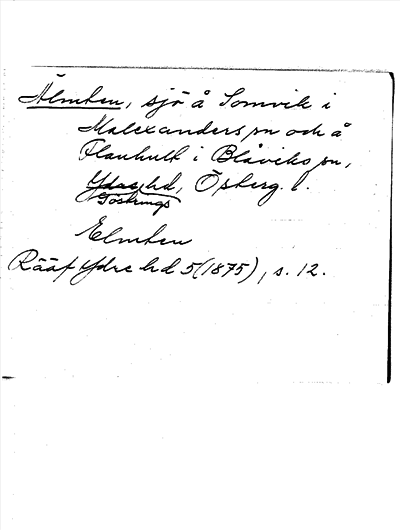 Älmten, sjö å Somvik i
Malexanders sn och å
Flankult i Blåviks sn,
Ydre hd, Österg. l.
Göstrings
Elmten
Rääf Ydre hd 5 (1875), s. 12.